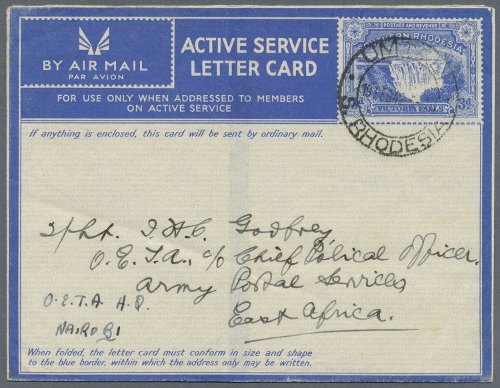 BY AIR MAIL
PAR AVION
ACTIVE SERVICE
LETTER CARD
FOR USE ONLY WHEN ADDRESSED TO MEMBERS
ON ACTIVE SERVICE
RHODESIA
VICTORIA FALLS
3D
UM
S. RHODESIA
If anything is enclosed, this card will be sent by ordinary mail.
I.H.C. Godfrey
O.E.T.A., c/o Chief Political Officer,
Army Postal Services
East Africa.
O.E.T.A H.Q.
NAIROBI
When folded, the letter card must conform in size and shape
to the blue border, within which the address only may be written.